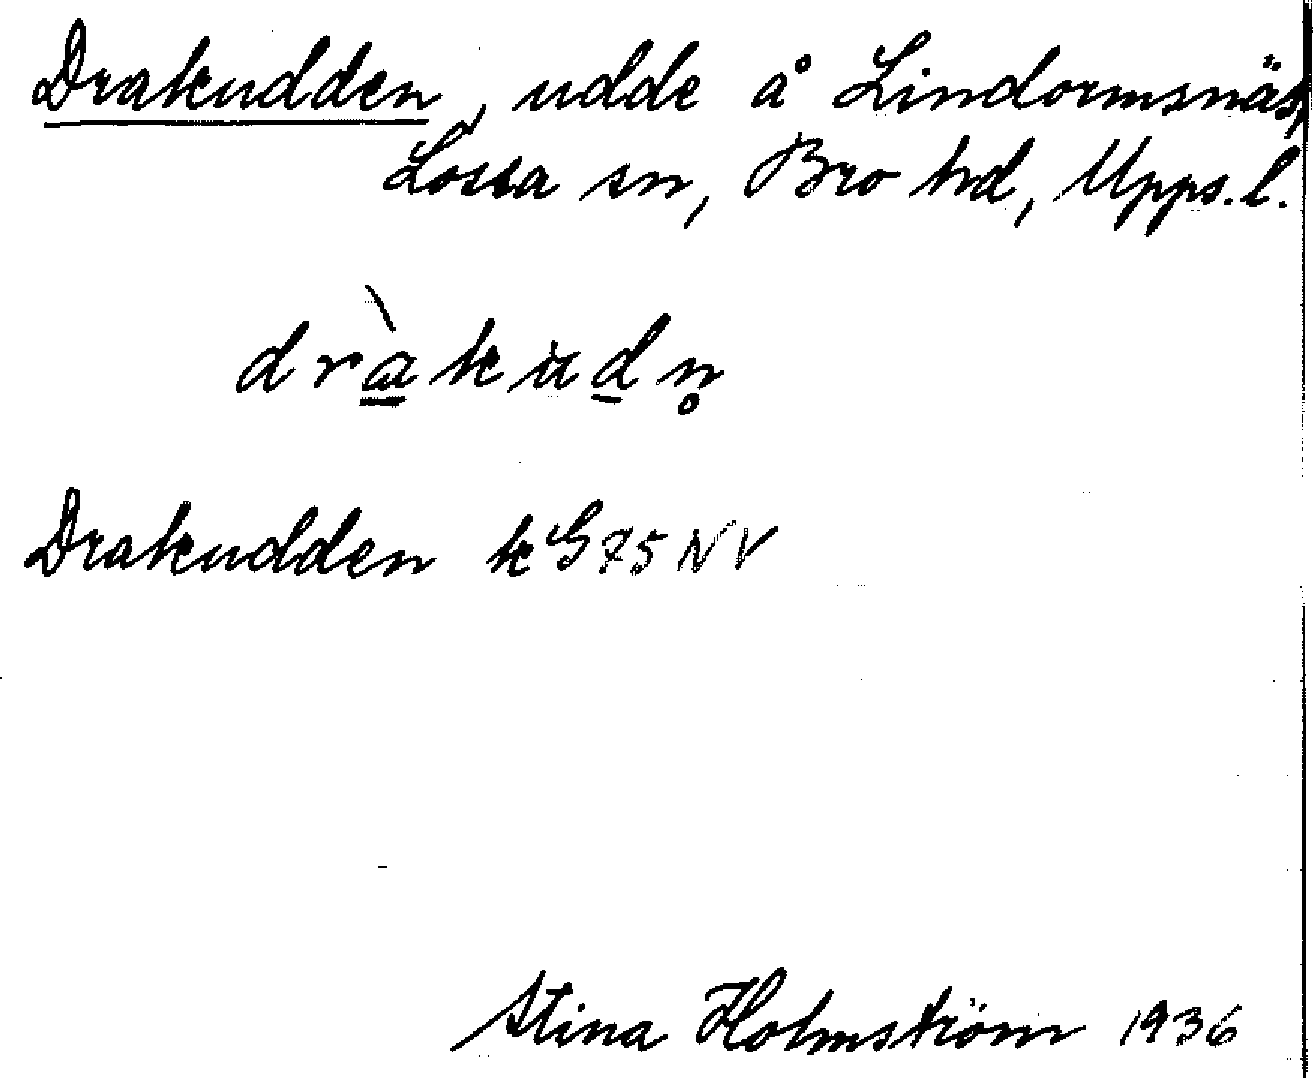 Drakudden, udde å Lindormsnäs,
Lossa sn, Bro hd, Upps. l.
dràkùdn̥
Drakudden kG 75 NV
Stina Holmström 1936